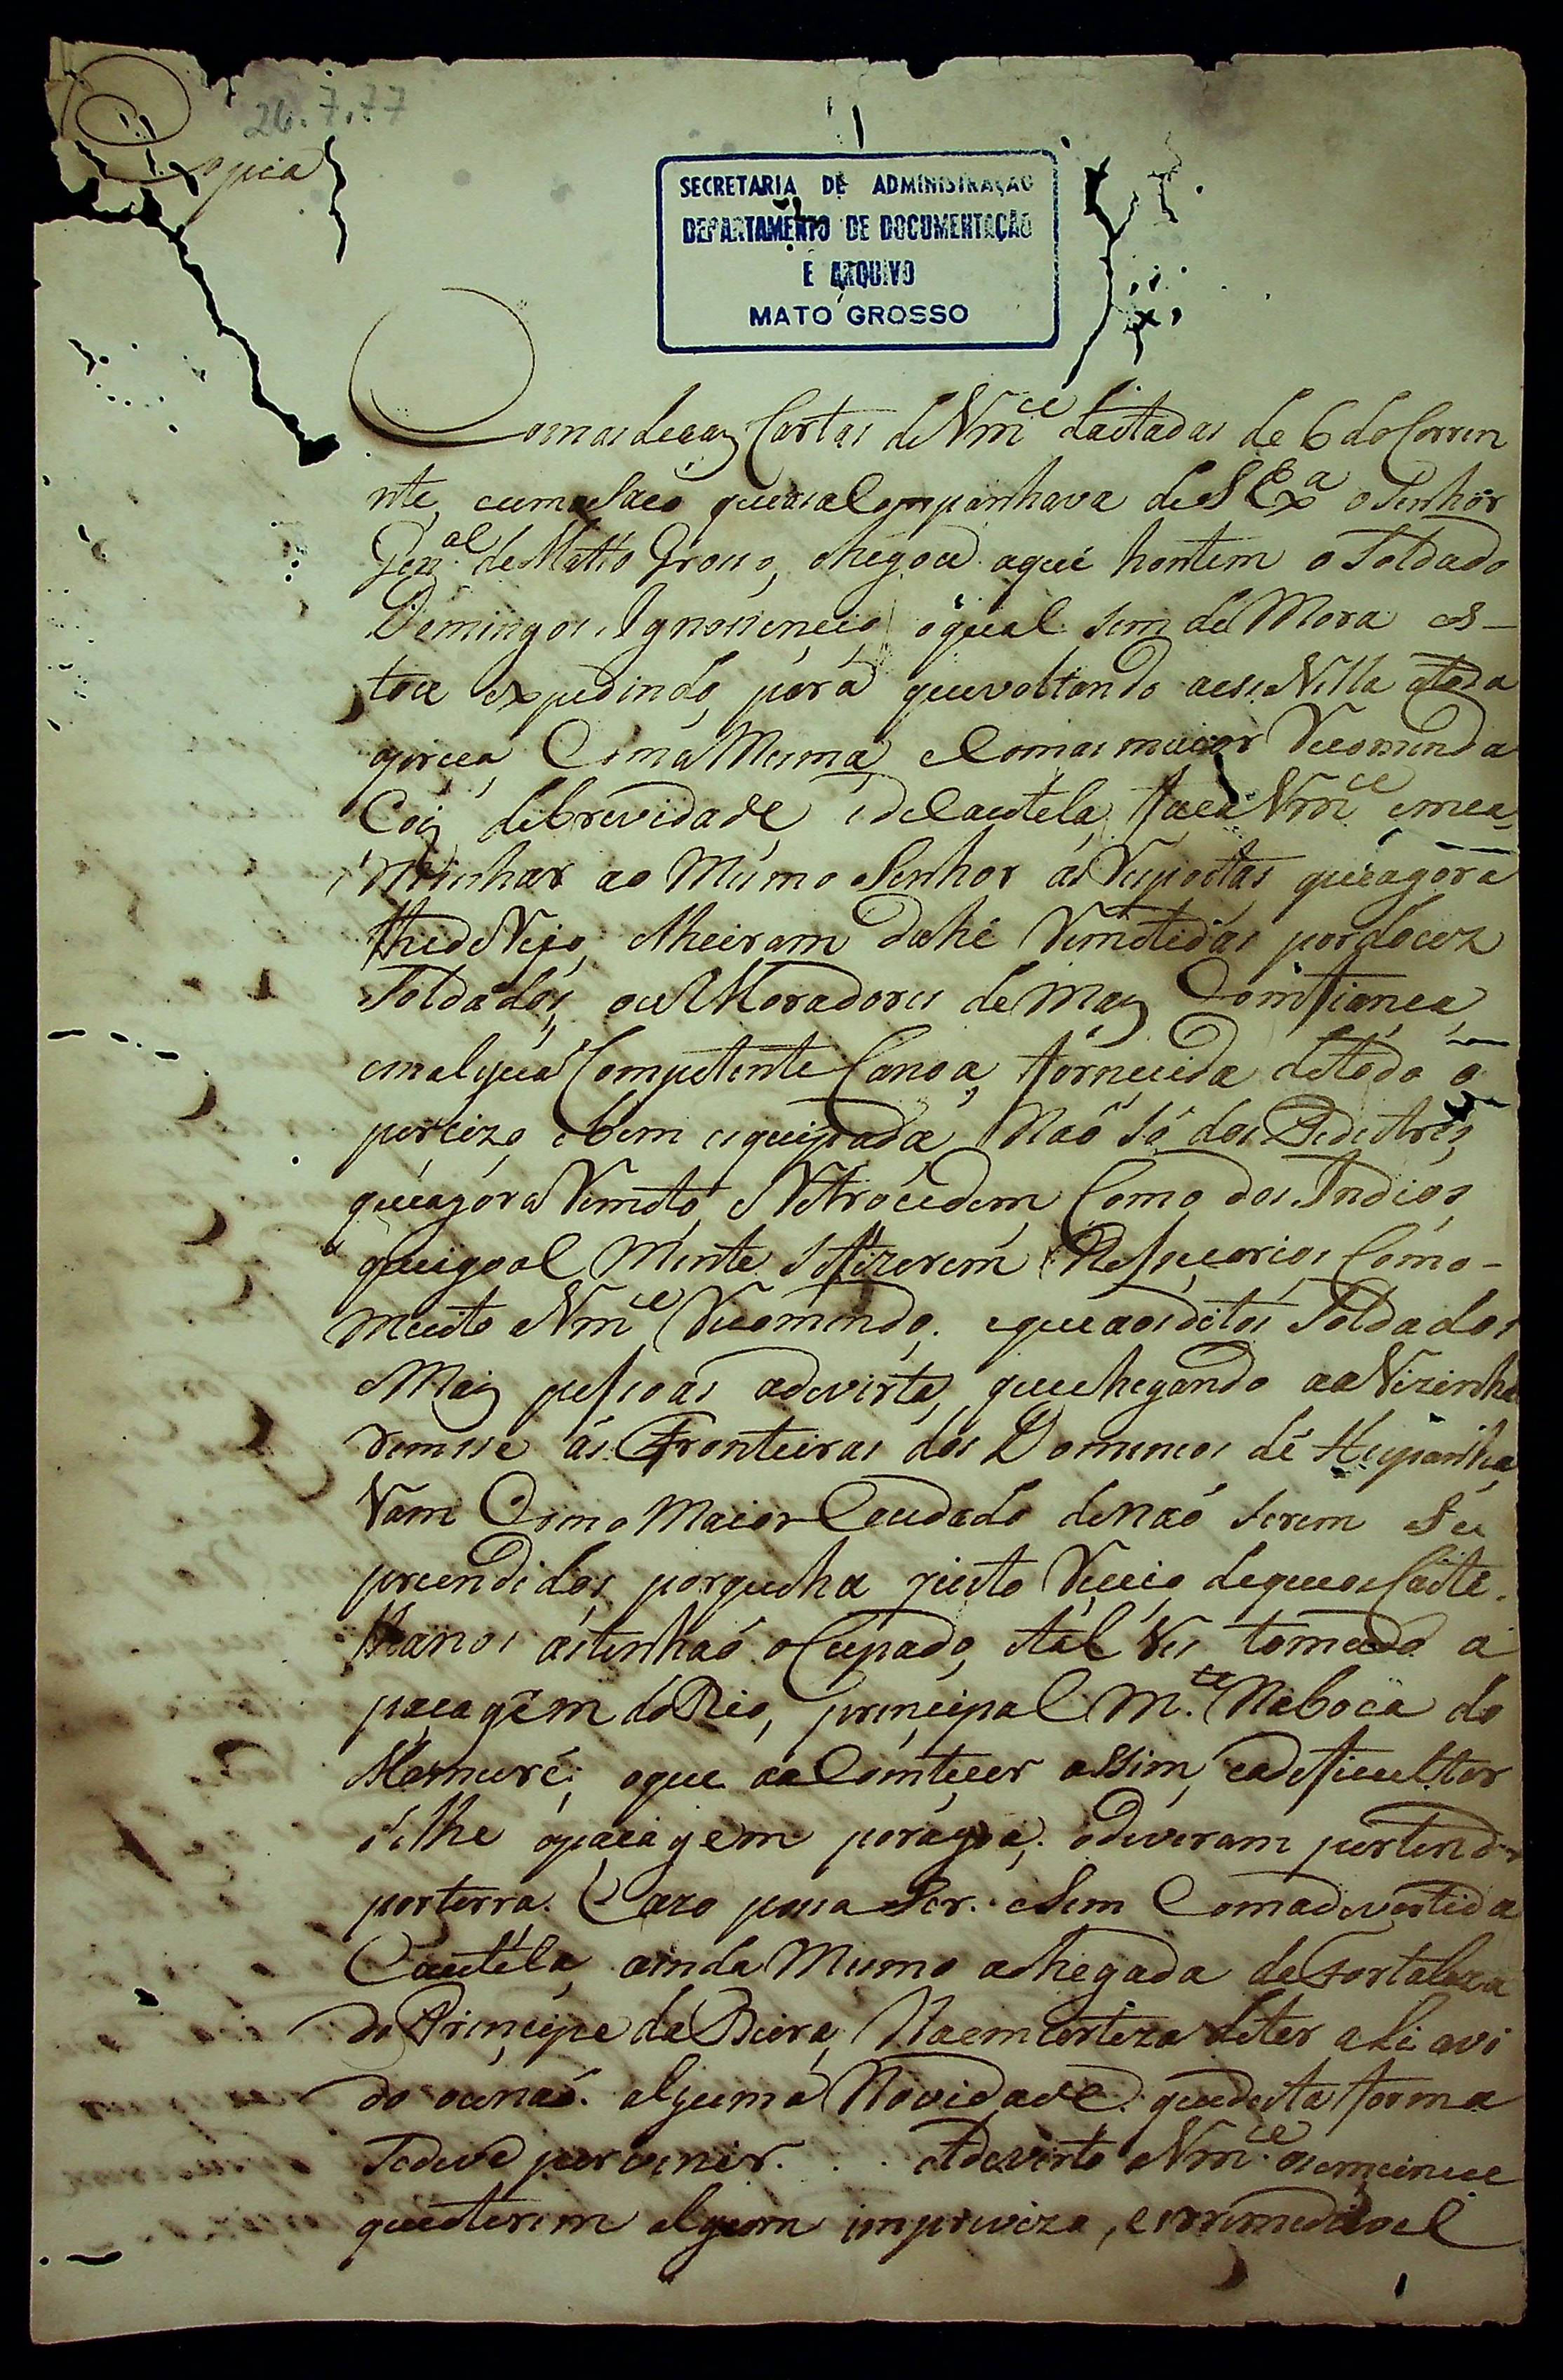 26.7.77
Copia
SECRETARIA DE ADMINISTRAÇÃO
DEPARTAMENTO DE DOCUMENTAÇÃO
E ARQUIVO
MATO GROSSO
Com as duas Cartas de Vm.ce dactadas de 6 do Corren
nte, eum Saco que as aCompanhava de S Ex.a o Senhor
Gen.al de Matto Grosso, chegou aqui hontem o Soldado
Domingos Ignossencio, o qual sem de Mora es-
tou expedindo, para que voltando a essa Villa
Com a Mesma, e Com as maior Recomenda
Coiz de brevidade, e de Cautela, faca Vm.ce emca-
minhar ao Mesmo Senhor as Respostas que agora
lhe deRejo, e lhe iram dahi Remetidas por doez
Soldados, ou Moradores de Maiz Comfianca,
em algua Competente Canoa, fornecida de todo o
percizo, e bem esquipada, Naõ só dos Pedestres,
que agora Remeto, e Retrocedem, Como dos Indios,
que igoal Mente se fizerem Nessecarios, Como-
muito a Vm.ce Recomendo. e que aos ditos Soldados
e Maiz pessoas adevirta, que chegando a aVezinha
remsse ás Fronteiras dos Dominios de Hespanha,
Vam Com o Maior Coudado de naõ serem Su
preendidos, porque ha justo Receio, de que os Caste-
lhanos as tenhaõ oCupado, e tal Ves tomado a
pacagem do Rio, principal M.te Na boca do
Mamuré; o que aaComtecer assim, e adeficultar
se lhe a pacagem por agoa, o deveram pertender
por terra. Cazo posa Ser. e Sem Com adevertida
Cautéla, ainda Mesmo a chegada da Fortaleza
do Principe da Beira, Na emcerteza de ter ali avi
do ou naõ. alguma Novidade. que desta forma
se deve percvenir. . . Adevirto a Vm.ce
que a terem algum improvizo, e irremediavel